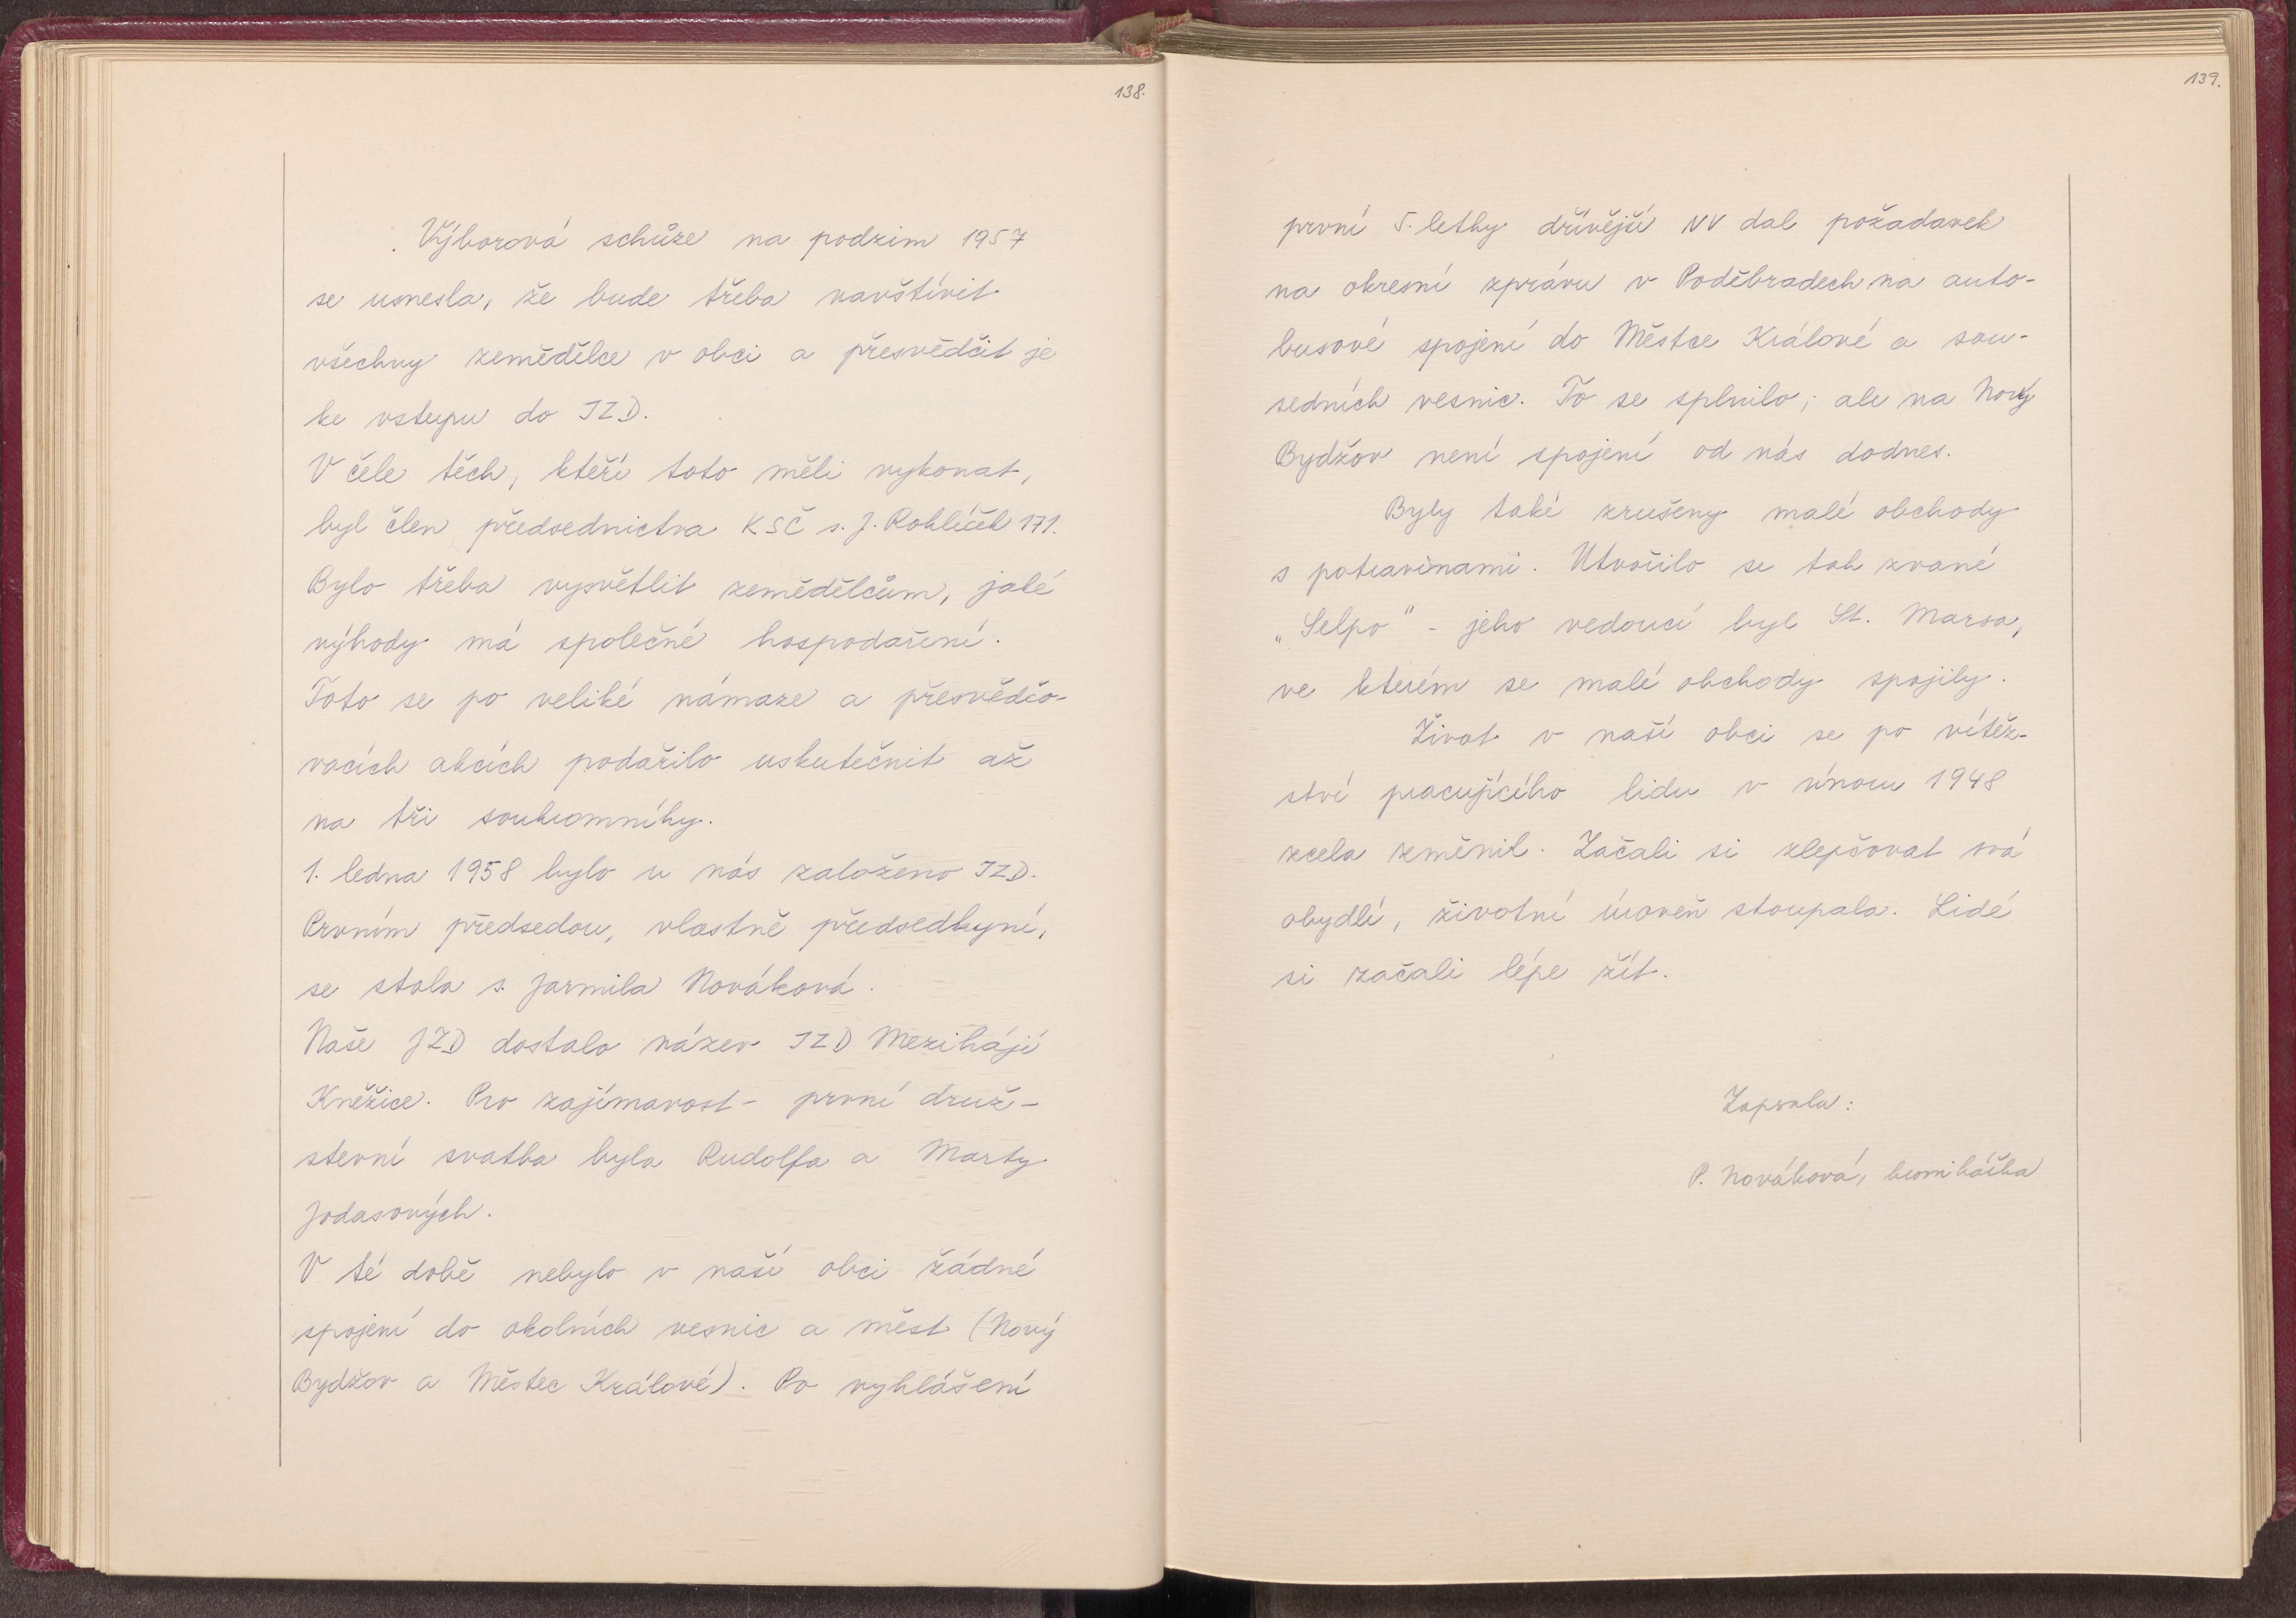 138.
Výborová schůze na podzim 1957
se usnesla, že bude třeba navštívit
všechny zemědělce v obci a přesvědčit je
ke vstupu do JZD.
V čele těch, kteří toto měli vykonat,
byl člen předsednictva KSČ s. J. Rohlíček 171.
Bylo třeba vysvětlit zemědělcům, jaké
výhody má společné hospodaření.
Toto se po veliké námaze a přesvědčo-
vacích akcích podařilo uskutečnit až
na tři soukromníky.
1. ledna 1958 bylo u nás založeno JZD.
Prvním předsedou, vlastně předsedkyní,
se stala s. Jarmila Nováková.
Naše JZD dostalo název JZD Mezihájí
Kněžice. Pro zajímavost - první druž-
stevní svatba byla Rudolfa a Marty
Jodasových.
V té době nebylo v naší obci žádné
spojení do okolních vesnic a měst (Nový
Bydžov a Městec Králové). Po vyhlášení
139.
první 5. letky dřívější NV dal požadavek
na okresní zprávu v Poděbradech na auto-
busové spojení do Městce Králové a sou-
sedních vesnic. To se splnilo; ale na Nový
Bydžov není spojení od nás dodnes.
Byly také zrušeny malé obchody
s potravinami. Utvořilo se tak zvané
„Selpo" - jeho vedoucí byl St. Marsa,
ve kterém se malé obchody spojily.
Život v naší obci se po vítěz-
ství pracujícího lidu v únoru 1948
zcela změnil. Začali si zlepšovat svá
obydlí, životní úroveň stoupala. Lidé
si začali lépe žít.
Zapsala:
P. Nováková, kronikářka